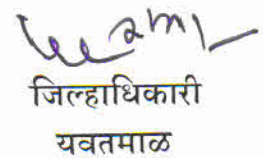 जिल्हाधिकारी
यवतमाळ